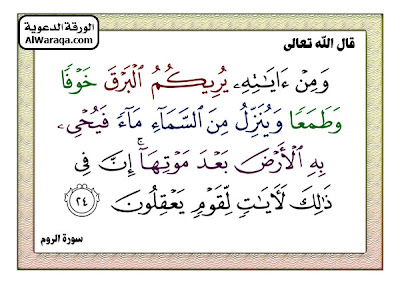 الورقة الدعوية
AlWaraqa.com
قال الله تعالى
وَمِنْ ءَايَـٰتِهِۦ يُرِيكُمُ ٱلْبَرْقَ خَوْفًا
وَطَمَعًا وَيُنَزِّلُ مِنَ ٱلسَّمَآءِ مَآءً فَيُحْىِۦ
بِهِ ٱلْأَرْضَ بَعْدَ مَوْتِهَآ ۚ إِنَّ فِى
ذَٰلِكَ لَـَٔايَـٰتٍ لِّقَوْمٍ يَعْقِلُونَ ٢٤
سورة الروم